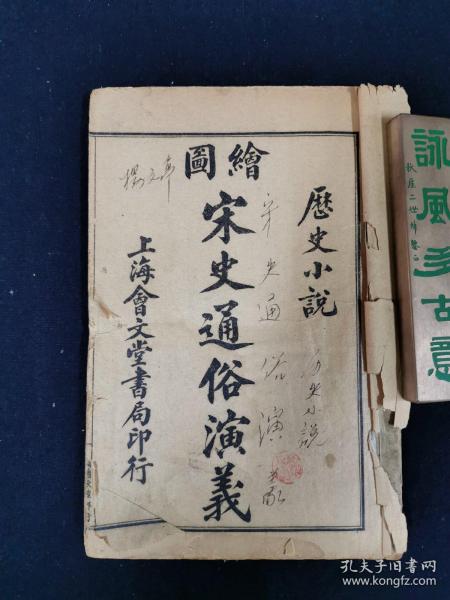 歷史小說
繪圖
宋史通俗演義
上海會文堂書局印行
宋史通俗演義
歷史小說
楊文
詠風多古意
孔夫子旧书网
www.kongfz.com